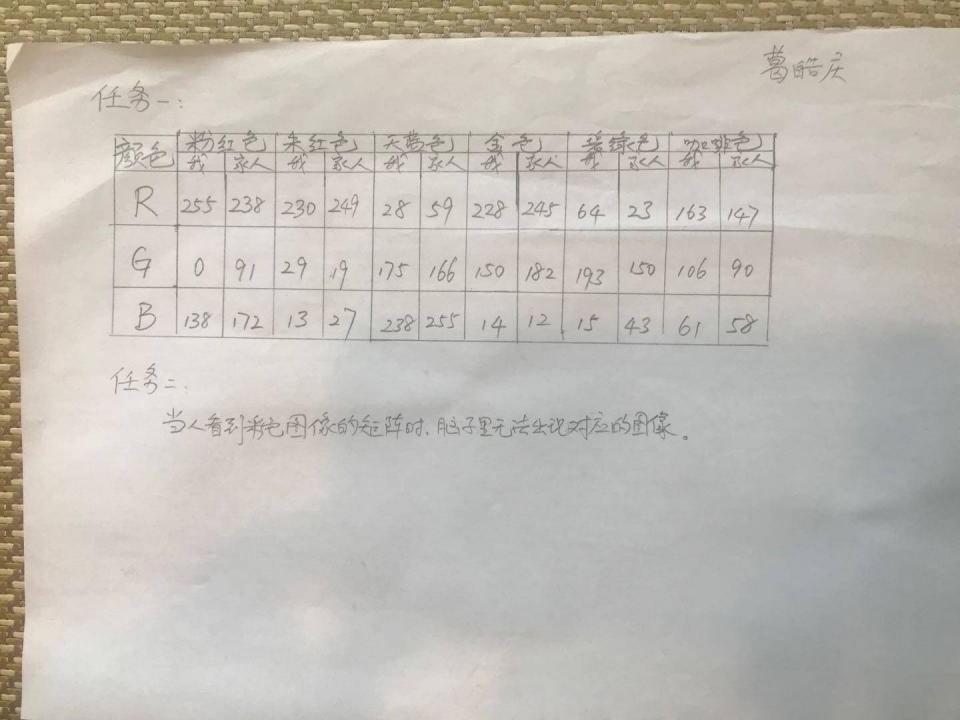 葛皓庆
任务一:
颜色 粉红色 朱红色 天蓝色 金色 绿色 咖啡色
我 家人 我 家人 我 家人 我 家人 我 家人 我 家人
R 255 238 230 249 28 59 228 245 64 23 163 147
G 0 91 29 19 175 166 150 182 193 150 106 90
B 138 172 13 27 238 255 14 12 15 43 61 58
任务二:
当人看到彩色图像的矩阵时,脑子里无法出现对应的图像。